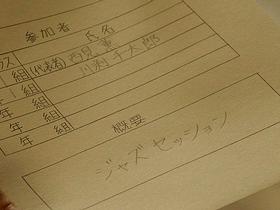 参加者 氏名
クラス
組 (代表者) 西見 薫
組 川渕 千太郎
年 組
年 組
年 組
概要
ジャズセッション